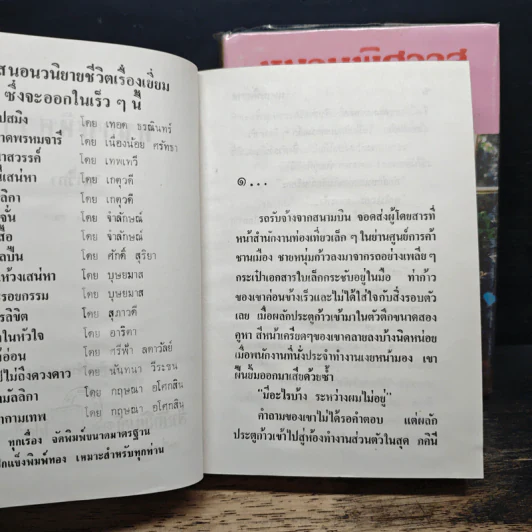 สนอนวนิยายชีวิตเรื่องเยี่ยม
ซึ่งจะออกในเร็ว ๆ นี้
ปสมิง โดย เทอด ธรณินทร์
าดพรหมจารี โดย เนื่องน้อย ศรัทธา
าสวรรค์ โดย เทพเทวี
ี่เสน่หา โดย เกตุวดี
ลิกา โดย เกตุวดี
จั่น โดย จำลักษณ์
ื่อ โดย จำลักษณ์
ลปืน โดย ศักดิ์ สุริยา
ห้วงเสน่หา โดย บุษยมาส
รอยกรรม โดย บุษยมาส
รลิขิต โดย สุภาวดี
าในหัวใจ โดย อาริตา
อ่อน โดย ศรีฟ้า ลดาวัลย์
ปไม่ถึงดวงดาว โดย นันทนา วีระชน
มัลลิกา โดย กฤษณา อโศกสิน
ากามเทพ โดย กฤษณา อโศกสิน
ทุกเรื่อง จัดพิมพ์ขนาดมาตรฐาน
ปกแข็งพิมพ์ทอง เหมาะสำหรับทุกท่าน
๑...
รถรับจ้างจากสนามบิน จอดส่งผู้โดยสารที่
หน้าสำนักงานท่องเที่ยวเล็ก ๆ ในย่านศูนย์การค้า
ชานเมือง ชายหนุ่มก้าวลงมาจากรถอย่างเหลือ ๆ
กระเป๋าเอกสารใบเล็กกระชับอยู่ในมือ ท่าก้าว
ของเขาค่อนข้างเร็วและไม่ได้ใส่ใจกับสิ่งรอบตัว
เลย เมื่อผลักประตูก้าวเข้ามาในตัวตึกขนาดสอง
คูหา สีหน้าเครียดๆของเขาคลายลงบ้างนิดหน่อย
เมื่อพนักงานที่นั่งประจำทำงานเงยหน้ามอง เขา
ฝืนยิ้มออกมาเสียด้วยซ้ำ
"มีอะไรบ้าง ระหว่างผมไม่อยู่"
คำถามของเขาไม่ได้รอคำตอบ แต่ผลัก
ประตูก้าวเข้าไปสู่ห้องทำงานส่วนตัวในสุด ภคินี